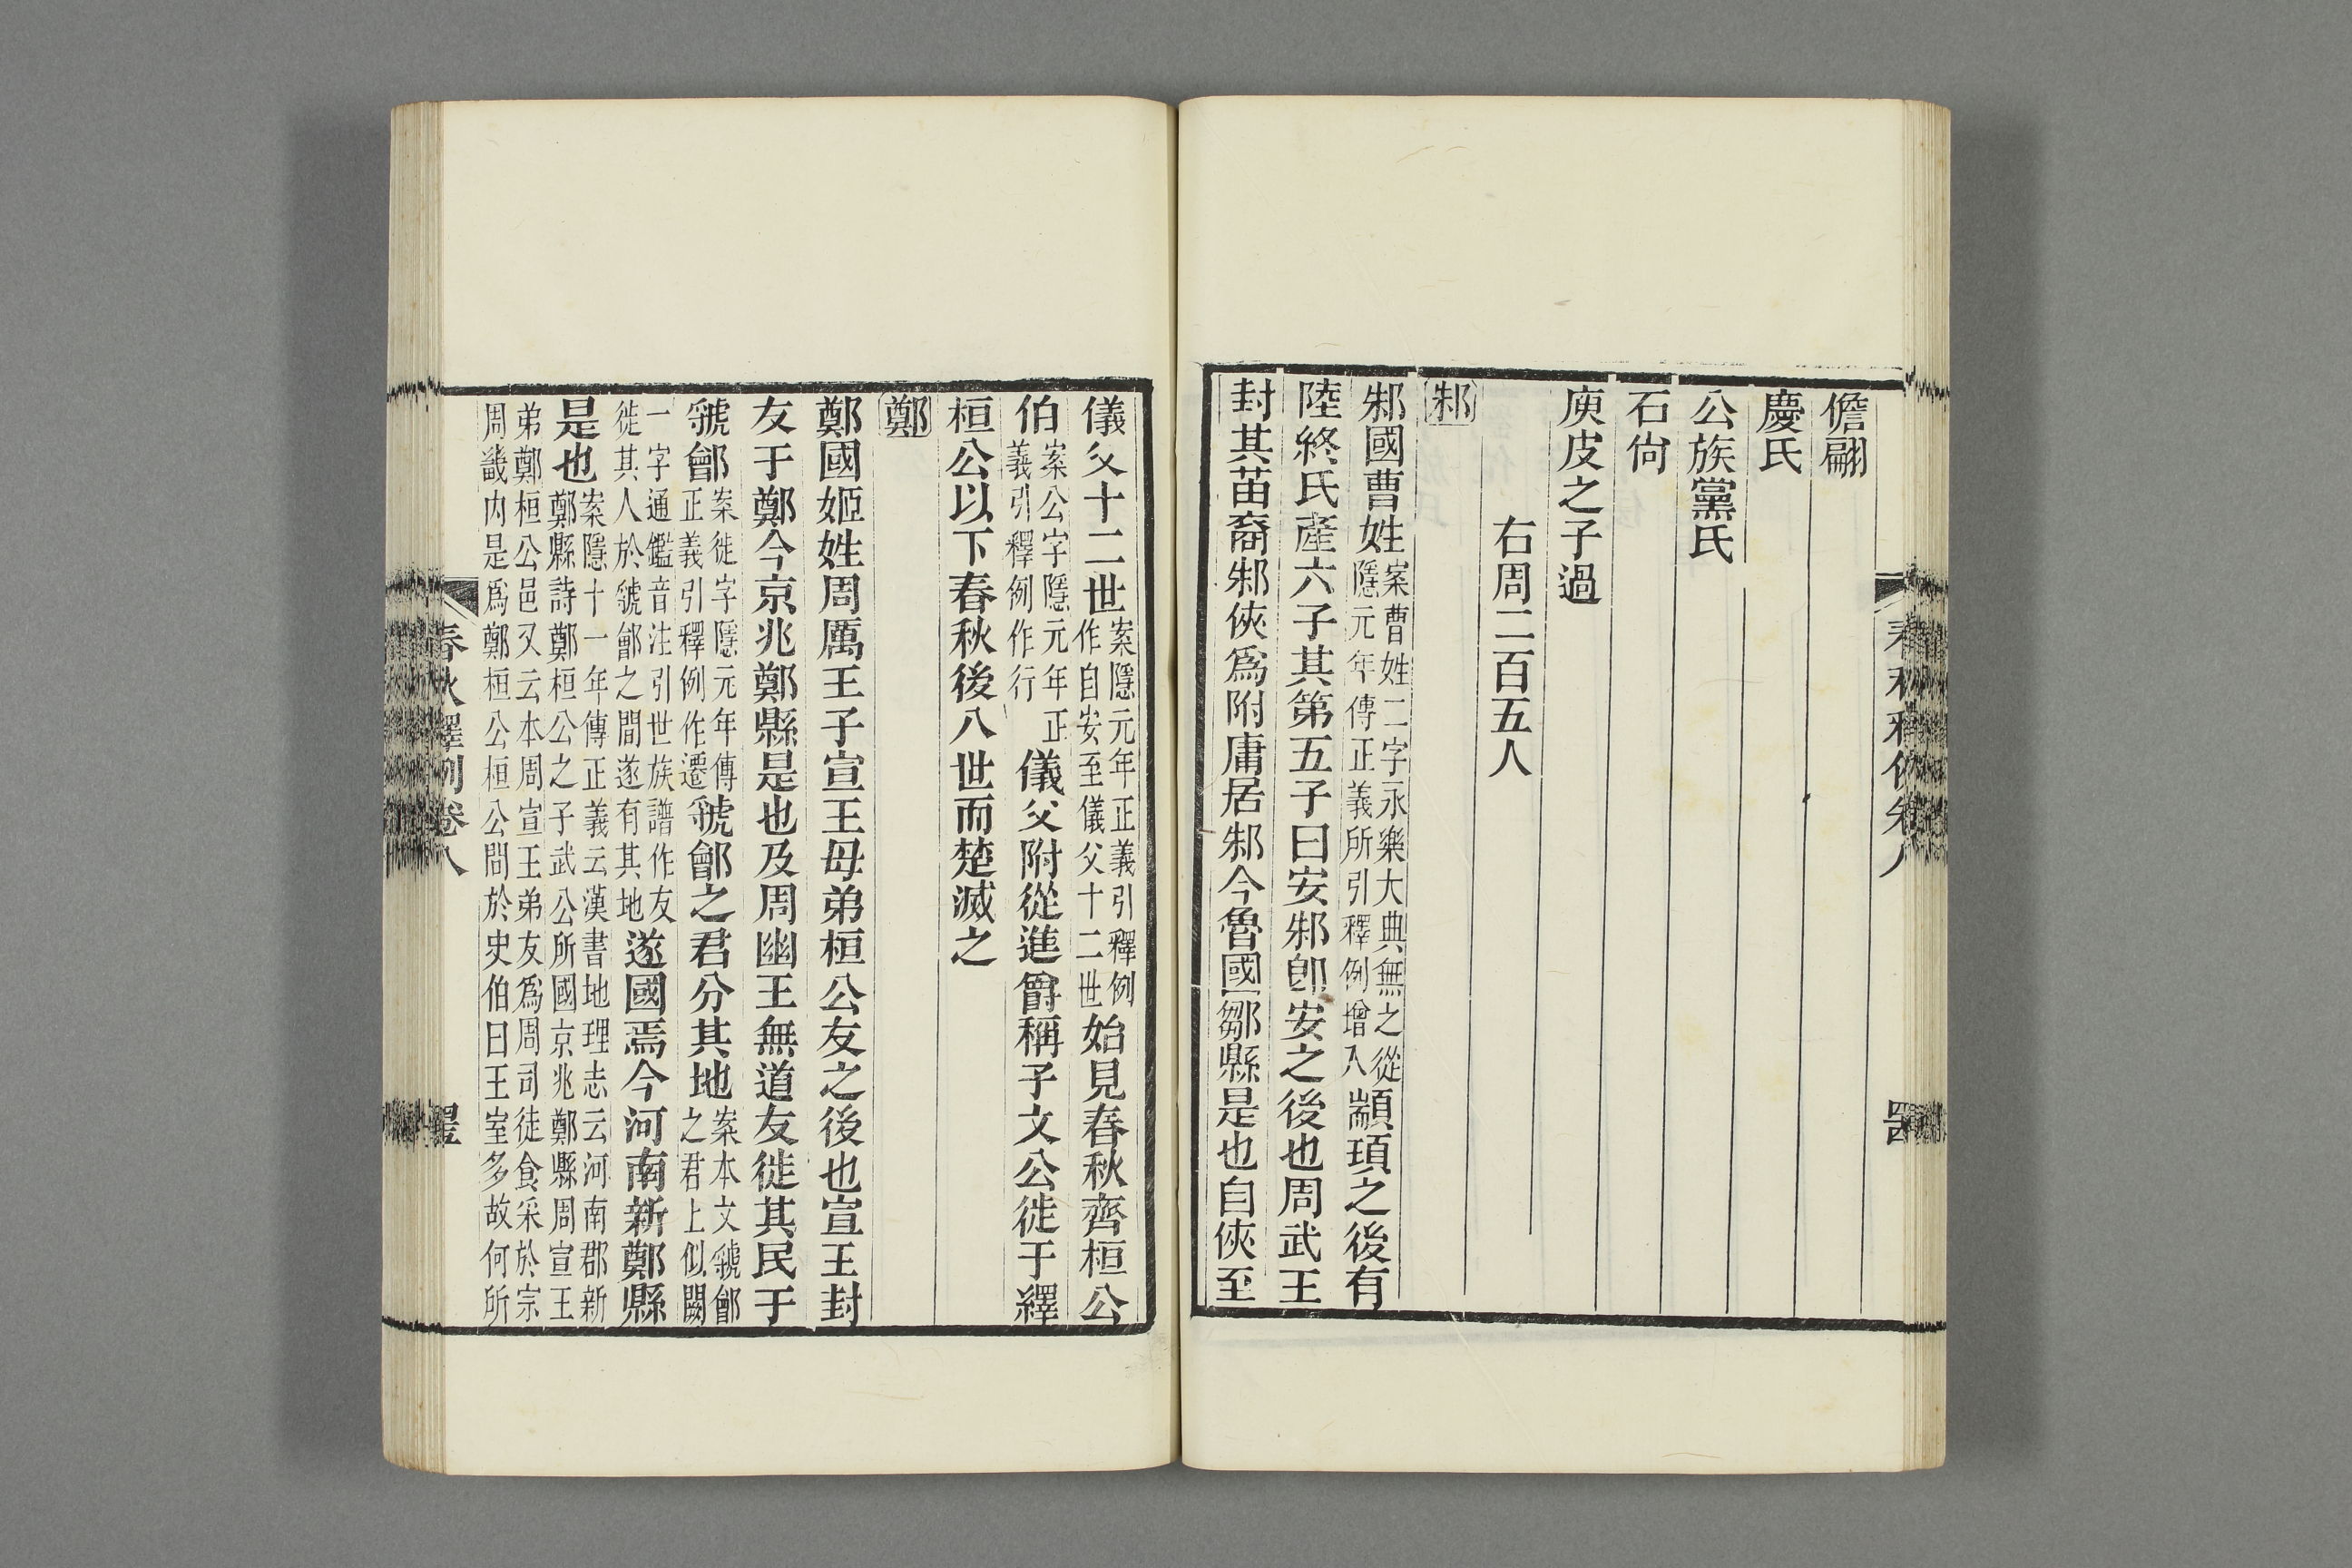 儋翩
慶氏
公族黨氏
石尙
庾皮之子過
右周二百五人
邾
邾國曹姓案曹姓二字永樂大典無之從隱元年傳正義所引釋例增入顓頊之後有
陸終氏產六子其第五子曰安邾卽安之後也周武王
封其苗裔邾俠爲附庸居邾今魯國鄒縣是也自俠至
儀父十二世案隱元年正義引釋例作自安至儀父十二世始見春秋齊桓公
伯案公字隱元年正義引釋例作行儀父附從進爵稱子文公徙于繹
桓公以下春秋後八世而楚滅之
鄭
鄭國姬姓周厲王子宣王母弟桓公友之後也宣王封
友于鄭今京兆鄭縣是也及周幽王無道友徙其民于
虢鄶案徙字隱元年傳正義引釋例作遷虢鄶之君分其地案本文虢鄶之君上似闕
一字通鑑音注引世族譜作友徙其人於虢鄶之間遂有其地遂國焉今河南新鄭縣
是也案隱十一年傳正義云漢書地理志云河南郡新鄭縣詩鄭桓公之子武公所國京兆鄭縣周宣王
弟鄭桓公邑又云本周宣王弟友爲周司徒食采於宗周畿內是爲鄭桓公桓公問於史伯曰王室多故何所
春秋釋例卷八